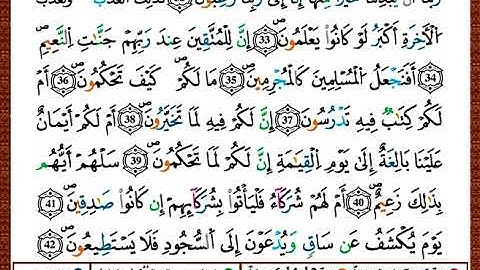 ٱلۡأٓخِرَةِ أَكۡبَرُ لَوۡ كَانُوا۟ يَعۡلَمُونَ ٣٣ إِنَّ لِلۡمُتَّقِينَ عِندَ رَبِّهِمۡ جَنَّٰتِ ٱلنَّعِيمِ
٣٤ أَفَنَجۡعَلُ ٱلۡمُسۡلِمِينَ كَٱلۡمُجۡرِمِينَ ٣٥ مَا لَكُمۡ كَيۡفَ تَحۡكُمُونَ ٣٦ أَمۡ
لَكُمۡ كِتَٰبٞ فِيهِ تَدۡرُسُونَ ٣٧ إِنَّ لَكُمۡ فِيهِ لَمَا تَخَيَّرُونَ ٣٨ أَمۡ لَكُمۡ أَيۡمَٰنٌ
عَلَيۡنَا بَٰلِغَةٌ إِلَىٰ يَوۡمِ ٱلۡقِيَٰمَةِ إِنَّ لَكُمۡ لَمَا تَحۡكُمُونَ ٣٩ سَلۡهُمۡ أَيُّهُم
بِذَٰلِكَ زَعِيمٌ ٤٠ أَمۡ لَهُمۡ شُرَكَآءُ فَلۡيَأۡتُوا۟ بِشُرَكَآئِهِمۡ إِن كَانُوا۟ صَٰدِقِينَ ٤١
يَوۡمَ يُكۡشَفُ عَن سَاقٖ وَيُدۡعَوۡنَ إِلَى ٱلسُّجُودِ فَلَا يَسۡتَطِيعُونَ ٤٢